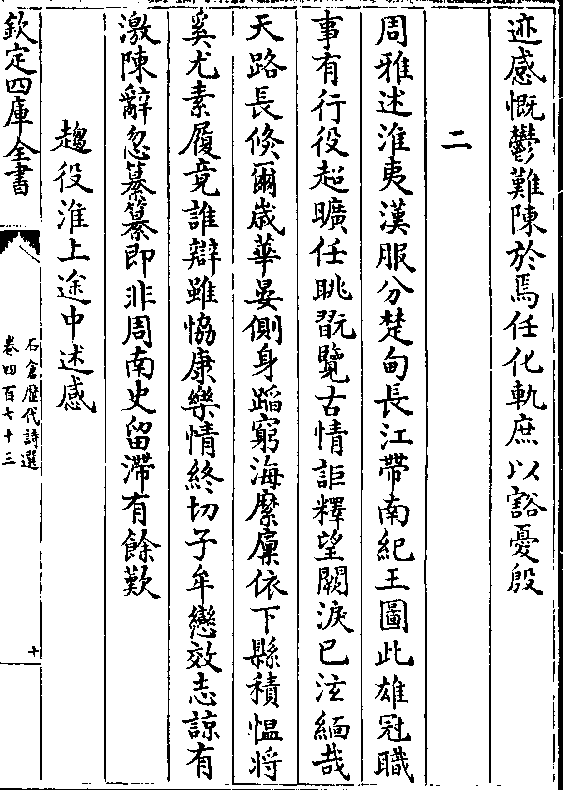 迹感慨鬱難陳於焉任化軌庶以豁憂殷
二
周雅述淮夷漢服分楚甸長江帶南紀王圖此雄冠職
事有行役超曠任眺翫覽古情詎釋望闕淚已泫緬哉
天路長倐爾嵗華晏側身蹈窮海縻廩依下縣積愠将
奚尤素履竟誰辯雖恊康樂情終切子牟戀效志諒有
激陳辭忽纂纂即非周南史留滯有餘歎
趨役淮上途中述感
欽定四庫全書
石倉歴代詩選
卷四百七十三
十